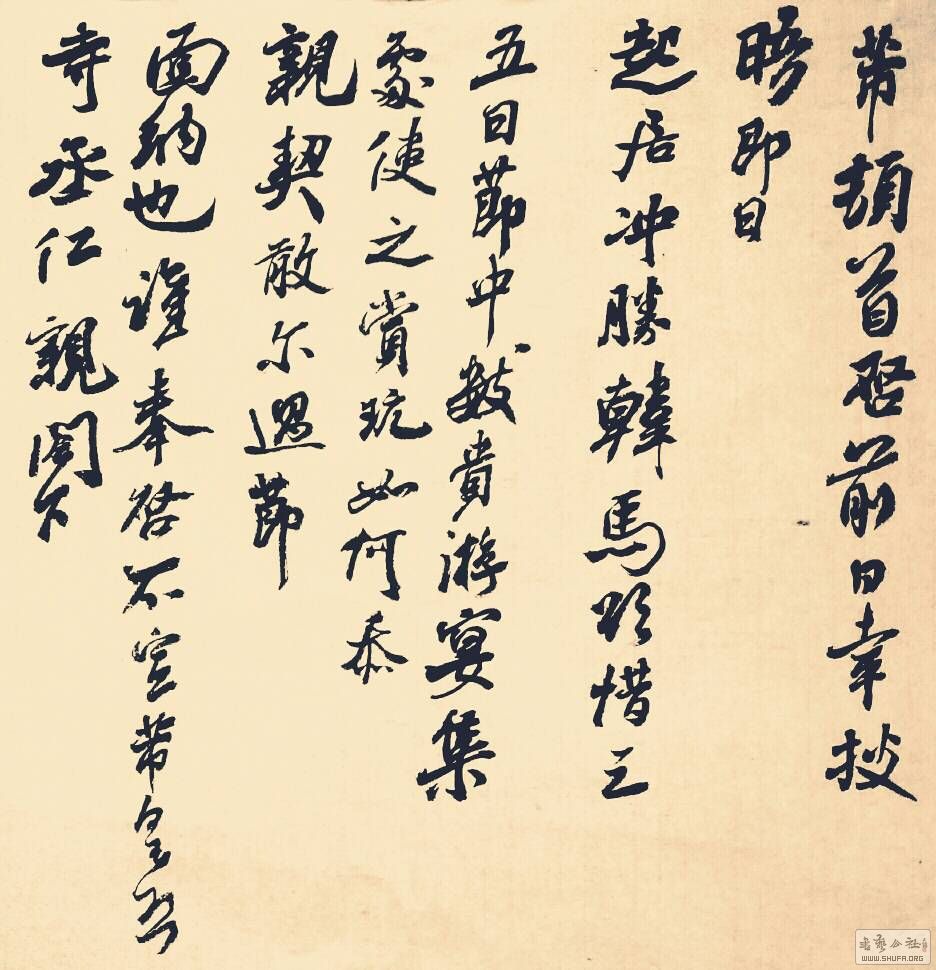 芾頓首啓前日幸披
晤即日
起居沖勝韓馬欲借三
五日節中數貴游宴集
處使之賞玩如何忝
親契敢尔過節
面納也謹奉啓不宣芾皇恐
寺丞仁親閣下
書藝公社
WWW.SHUFA.ORG